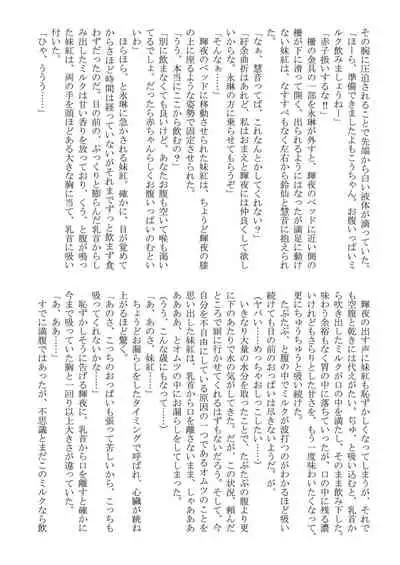 その腕に圧迫されることで先端から白い液体が滴っていた。
「ほーら、準備できましたよもこうちゃん。お腹いっぱいミ
ルク飲みましょうねー」
「赤子扱いするなぁ!!」
　柵の金具の一部を永琳が外すと、輝夜のベッドに近い側の
柵が下に滑って開く。出られるようにはなったが満足に動け
ない妹紅は、なすすべもなく左右から鈴仙と慧音に抱えられ
る。
「なぁ、慧音ってば。これなんとかしてくれない？」
「紆余曲折はあれど、私はおまえと輝夜には仲良くして欲し
いからな。永琳の方に乗らせてもらうぞ」
「そんなぁ……」
　輝夜のベッドに移動させられた妹紅は、ちょうど輝夜の膝
の上に座るような姿勢で固定させられた。
「うう、本当にここから飲むの？」
「別に飲まなくても良いけど、あなたお腹も空いて喉も渇い
てるでしょ。だったら赤ちゃんらしくお腹いっぱいのむとい
いわ」
　ほらほら、と永琳に急かされる妹紅。確かに、目が覚めて
からさほど時間は経っていないがそれまでずっと飲まず食
わずだったのだ。目の前の、ぷっくりと膨らんだ乳首からし
み出したミルクは甘い香りを放っており、くう、と腹が鳴っ
た妹紅は、両の手を頭ほどある大きな胸に当て、乳首に吸い
付いた。
「ひゃ、ううう……」
　輝夜の出す声に妹紅も恥ずかしくなってしまうが、それで
も空腹と乾きには代えがたい。ぢゅ、と吸い込むと、乳首か
ら吹き出したミルクが口の中を満たし、そのまま飲み下した。
味わう余裕もなく胃の中に落ちていったが、口の中に残る濃
いけれどもさらりとした甘さを、もう一度味わいたくなって、
更にちゅうちゅうと吸い続けた。
　たぷたぷ、と腹の中でミルクが波打つのがわかるほど吸い
続けても目の前のおっぱいは尽きないようだ。が、
（ヤバい……めっちゃおしっこしたい……）
　いきなり大量の水分を取ったことで、たぷたぷの腹より更
に下のあたりで水の気がしてきた。だが、この状況、頼んだ
ところで厠に行かせてくれるはずもないだろう。そして、今
自分を不自由にしている原因の一つであるオムツのことを
思い出した妹紅は、乳首から口を離さないまま、しゃああ
あああ、とオムツの中にお漏らしをしてしまった。
（うう、こんな歳にもなって……）
「あ、あのさ、妹紅……」
　ちょうどお漏らしをしたタイミングで呼ばれ、心臓が跳ね
上がるほど驚く。
「あのさ、こっちのおっぱいも張って苦しいから、こっちも
吸ってくれないかな……」
　恥ずかしそうに告げる輝夜に、乳首から口を離すと確かに
今まで吸っていた胸と一回り以上大きさが違っていた。
すでに満腹ではあったが、不思議とまだこのミルクなら飲